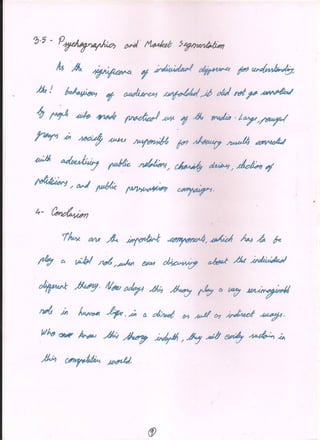 3.5 - Psychographics and Market Segmentation
As the significance of individual differences for understanding
the! behaviors of audiences unfolded, it did not go unnoticed
by people who made practical use of the media - Large, powerful
groups in society were responsible for showing results connected
with advertising public relations, charity drives, election of
politicians, and public persuasion campaigns.
4- Conclusion
These are the important components, which has to be
play a vital role, when ever discussing about the individual
different theory. Now adays this theory play a very unimaginable
role in human life, in a direct as well as indirect ways.
Who ever know this theory indepth, they will easily sustain in
this competative world.
9